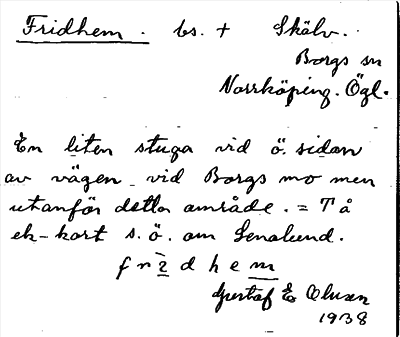 Fridhem. bs. + Skälv.
Borgs sn
Norrköping. Ögl.
En liten stuga vid ö. sidan
av vägen vid Borgs mo men
utanför detta område. = Tå
ek-kart s. ö. om Lenalund.
f r i d h e m
Gustaf E Olsson
1938